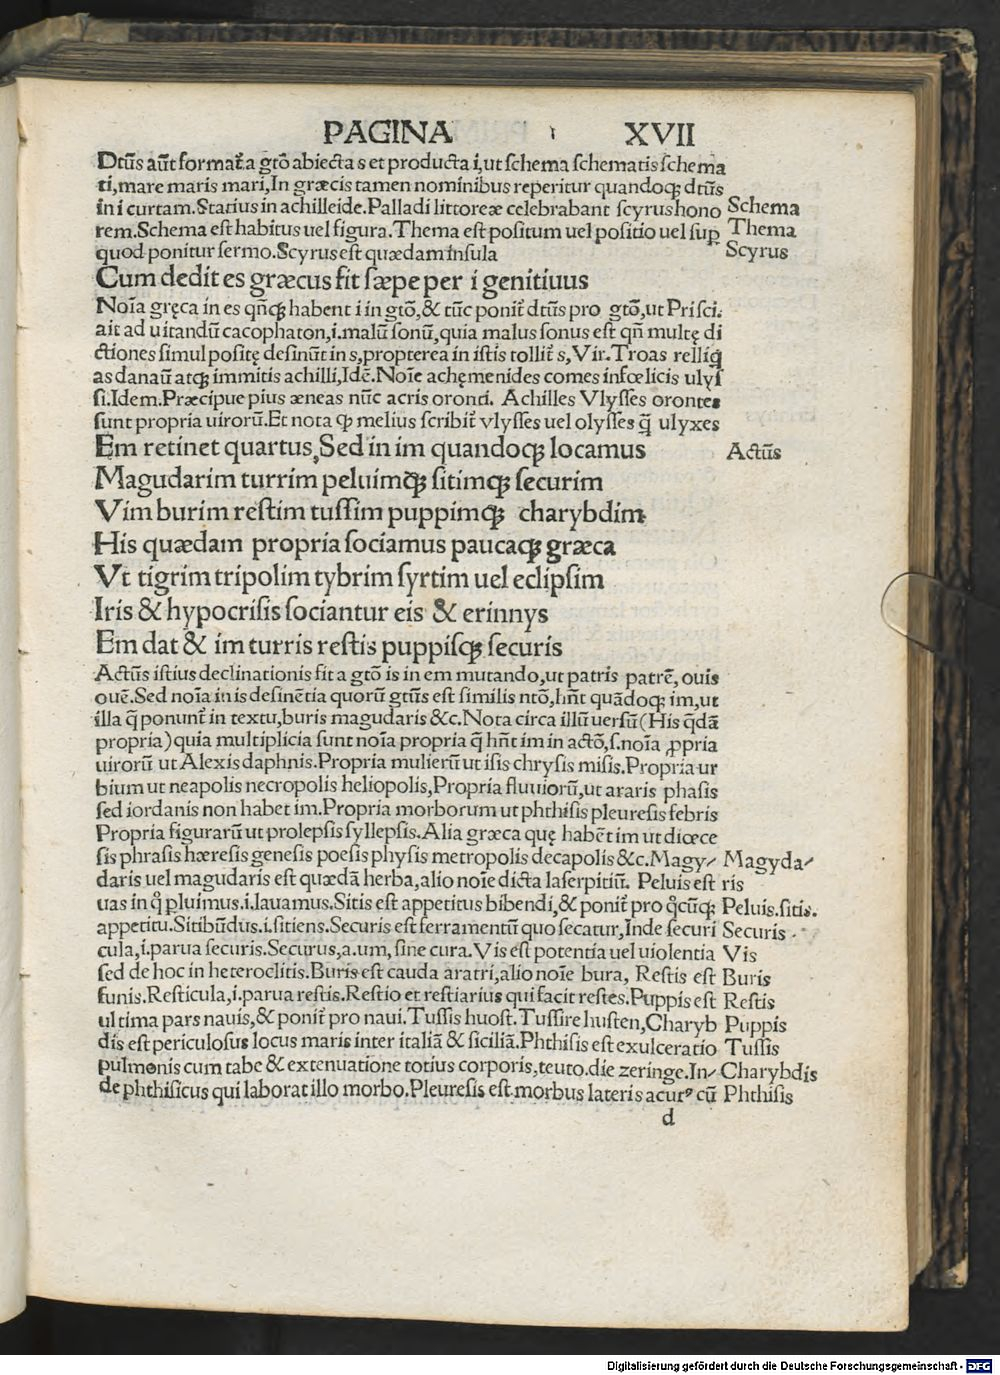 PAGINA ı XVII
Dtūs aūt format̄ a gtō abiecta s et producta i, ut ſchema ſchematis ſchema
ti, mare maris mari, In græcis tamen nominibus reperitur quandoq; dtūs
in i curtam. Statius in achilleide. Palladi littoreæ celebrabant ſcyrus hono Schema
rem. Schema eſt habitus uel figura. Thema eſt poſitum uel poſitio uel ſuꝑ Thema
quod ponitur ſermo. Scyrus eſt quædam inſula Scyrus
Cum dedit es græcus fit ſæpe per i genitiuus
Noīa gręca in es qñq; habent i in gtō, & tūc ponit̄ dtūs pro gtō, ut Priſci.
ait ad uitandū cacophaton, i. malū ſonū, quia malus ſonus eſt qñ multę di
ctiones ſimul poſitę deſinūt in s, propterea in iſtis tollit̄ s, Vir. Troas relliq̄
as danaū atq; immitis achilli, Idē. Noīe achęmenides comes infœlicis ulyſ
ſi. Idem. Præcipue pius æneas nūc acris oronti. Achilles Vlyſſes orontes
ſunt propria uirorū. Et nota ꝙ melius ſcribit̄ vlyſſes uel olyſſes q̄ ulyxes
Em retinet quartus, Sed in im quandoq; locamus Actūs
Magudarim turrim peluimq; ſitimq; ſecurim
Vim burim reſtim tuſſim puppimq; charybdim
His quædam propria ſociamus paucaq; græca
Vt tigrim tripolim tybrim ſyrtim uel eclipſim
Iris & hypocriſis ſociantur eis & erinnys
Em dat & im turris reſtis puppiſq; ſecuris
Actūs iſtius declinationis fit a gtō is in em mutando, ut patris patrē, ouis
ouē. Sed noīa in is deſinētia quorū gtūs eſt ſimilis ntō, hñt quādoq; im, ut
illa q̄ ponunt̄ in textu, buris magudaris &c. Nota circa illū uerſū (His q̄dā
propria) quia multiplicia ſunt noīa propria q̄ hñt im in actō, ſ. noīa ꝓpria
uirorū ut Alexis daphnis. Propria mulierū ut iſis chryſis miſis. Propria ur
bium ut neapolis necropolis heliopolis, Propria fluuiorū, ut araris phaſis
ſed iordanis non habet im. Propria morborum ut phthiſis pleureſis febris
Propria figurarū ut prolepſis ſyllepſis. Alia græca quę habēt im ut diœce
ſis phraſis hæreſis geneſis poeſis phyſis metropolis decapolis &c. Magy⸗ Magyda⸗
daris uel magudaris eſt quædā herba, alio noīe dicta laſerpitiū. Peluis eſt ris
uas in q̊ pluimus. i. lauamus. Sitis eſt appetitus bibendi, & ponit̄ pro q̊cūq; Peluis. ſitis.
appetitu. Sitibūdus. i. ſitiens. Securis eſt ferramentū quo ſecatur, Inde ſecuri Securis.
cula, i. parua ſecuris. Securus, a. um, ſine cura. Vis eſt potentia uel uiolentia Vis
ſed de hoc in heteroclitis. Buris eſt cauda aratri, alio noīe bura, Reſtis eſt Buris
funis. Reſticula, i. parua reſtis. Reſtio et reſtiarius qui facit reſtes. Puppis eſt Reſtis
ultima pars nauis, & ponit̄ pro naui. Tuſſis huoſt. Tuſſire huſten, Charyb Puppis
dis eſt periculoſus locus maris inter italiā & ſiciliā. Phthiſis eſt exulceratio Tuſſis
pulmonis cum tabe & extenuatione totius corporis, teuto. die zeringe. In⸗ Charybdis
de phthiſicus qui laborat illo morbo. Pleureſis eſt morbus lateris acutꝰ cū Phthiſis
d
Digitalisierung gefördert durch die Deutsche Forschungsgemeinschaft - DFG